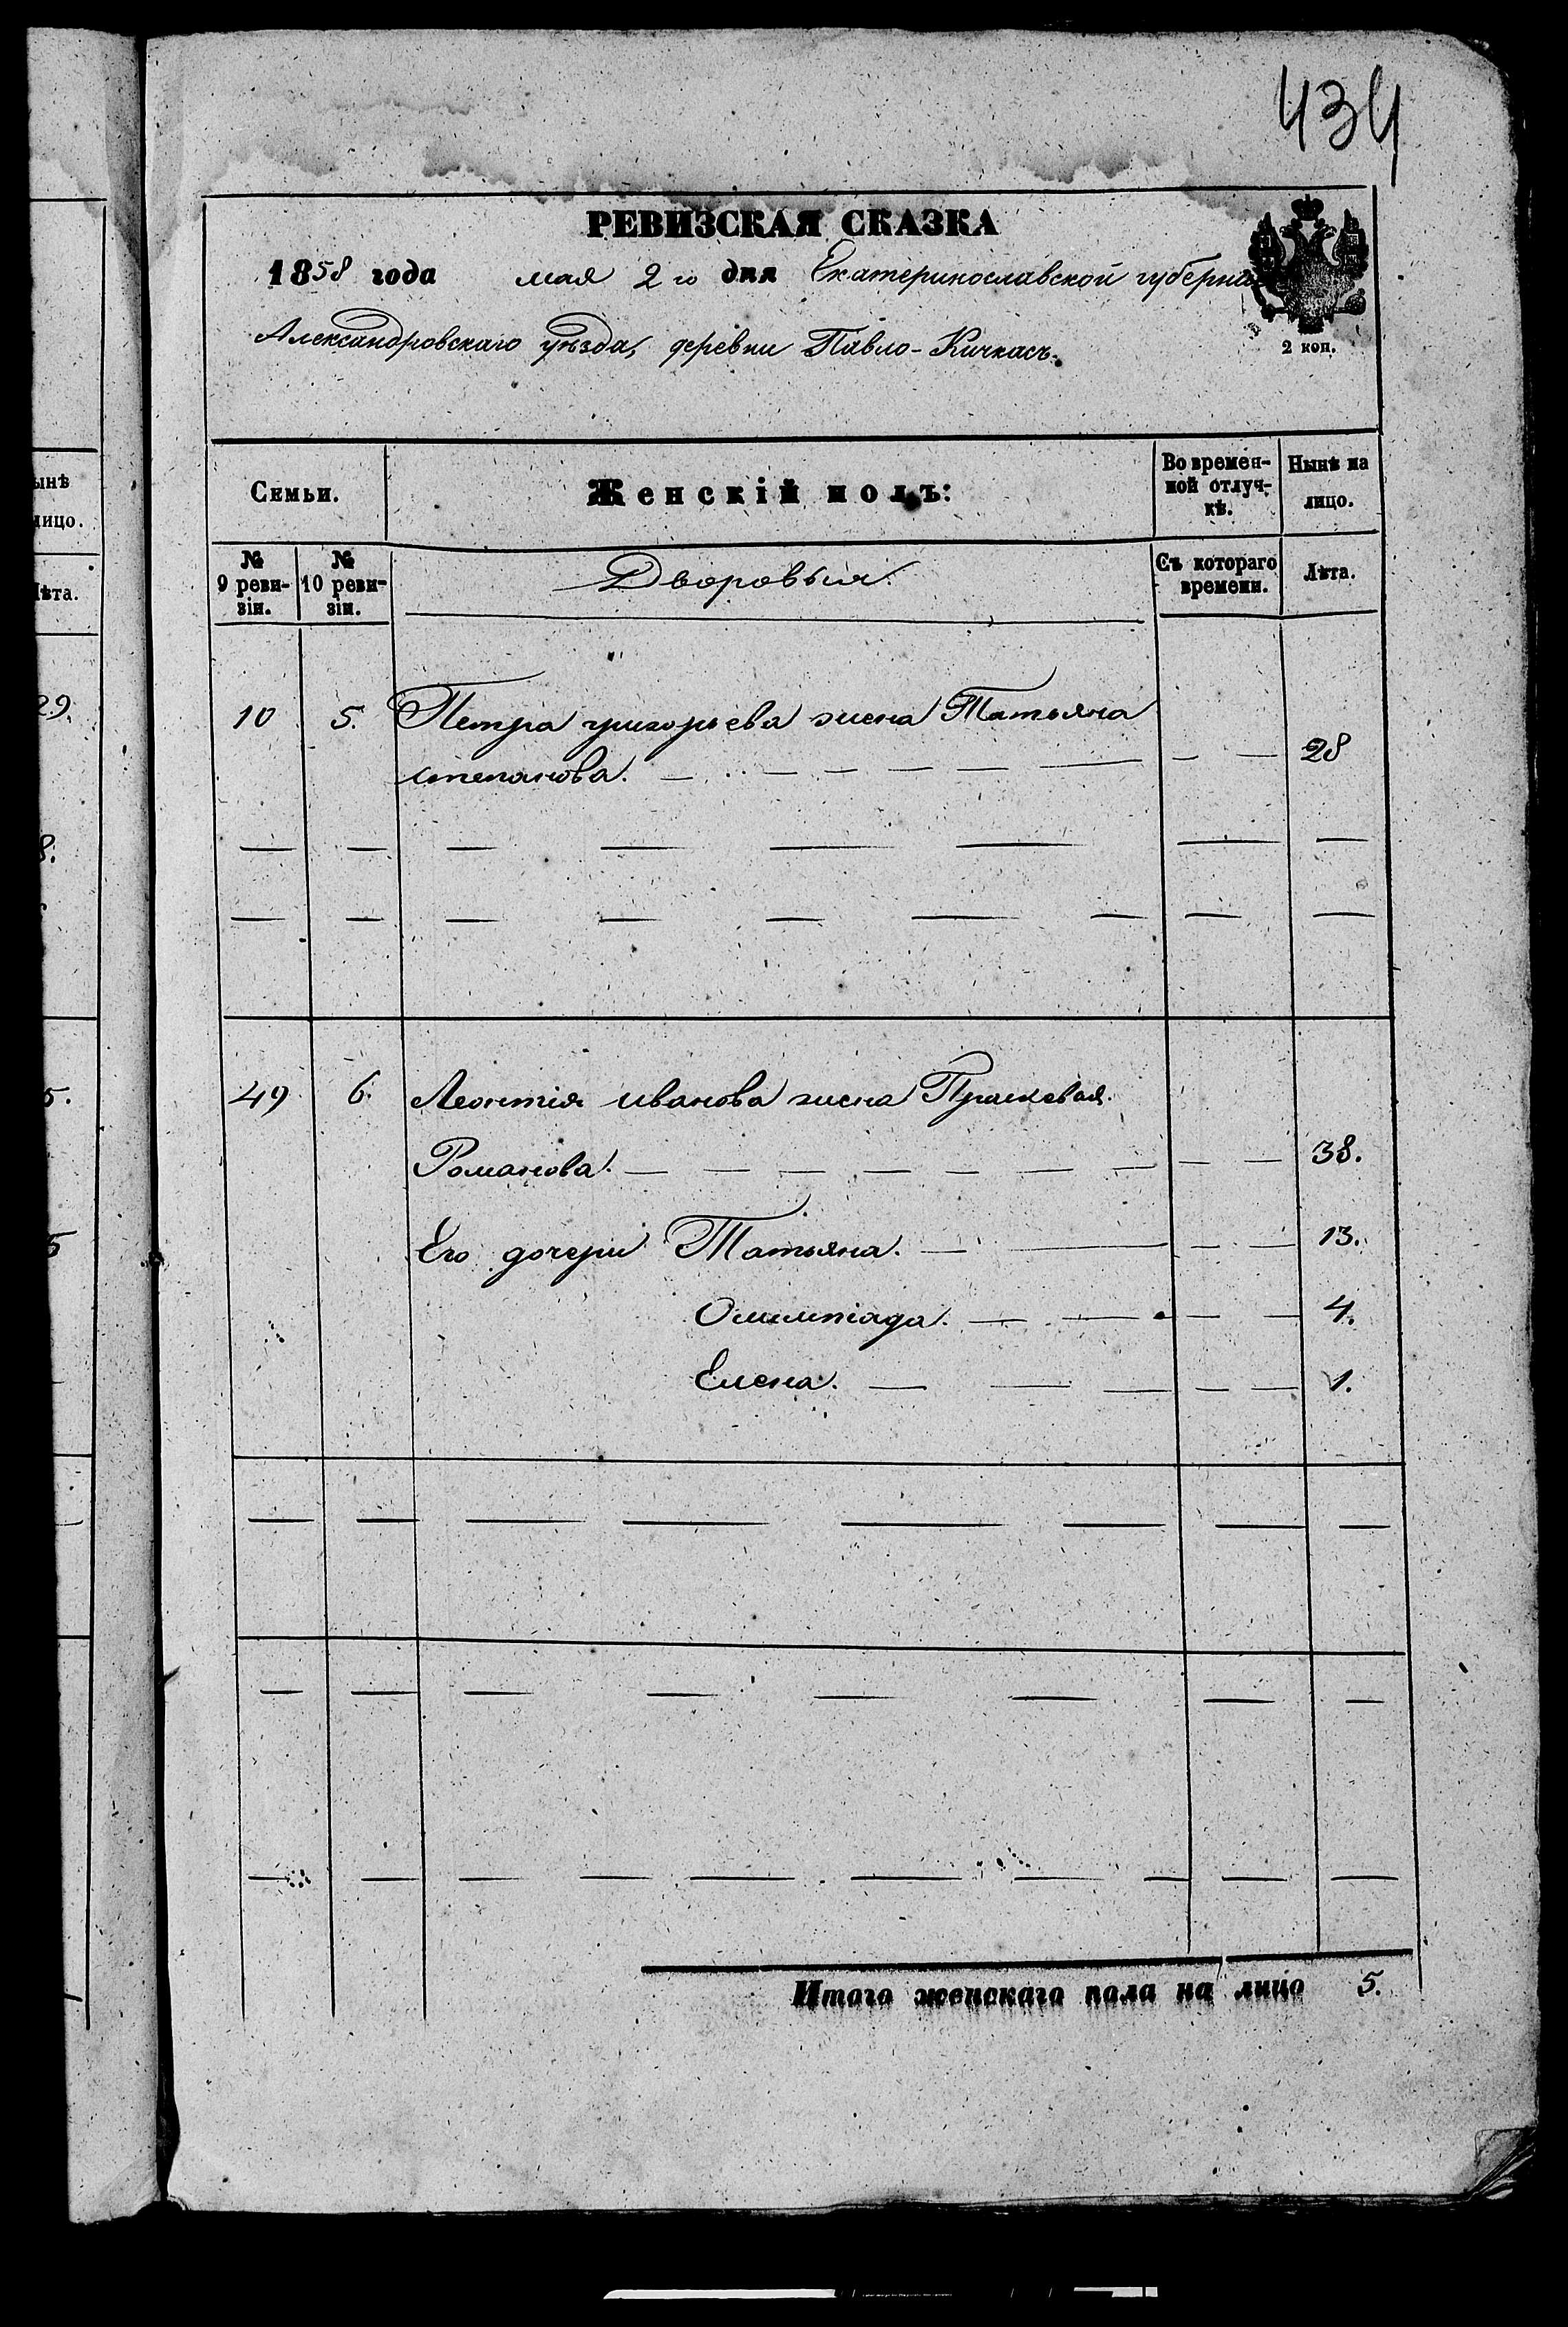 434
РЕВИЗСКАЯ СКАЗКА
1858 года мая 2го дня Екатеринославской губерніи
Александровскаго уѣзда, деревни Павло-Кичкасъ.
2 коп.
Семьи. Женскій полъ: Во времен- Ныне на
ной отлуч- лицо.
кѣ.
№ № Дворовыя. Съ котораго Лѣта.
9 реви- 10 реви- времени.
зіи. зіи.
10 5. Петра григорьева жена Татьяна
степанова. 28
49 6. Леонтія иванова жена Прасковья
Романова. 38.
Его дочери Татьяна. 13.
Олимпіада. 4.
Елена. 1.
Итого женскаго пола на лицо 5.
ынѣ
лицо.
Лѣта.
29.
8.
5.
5